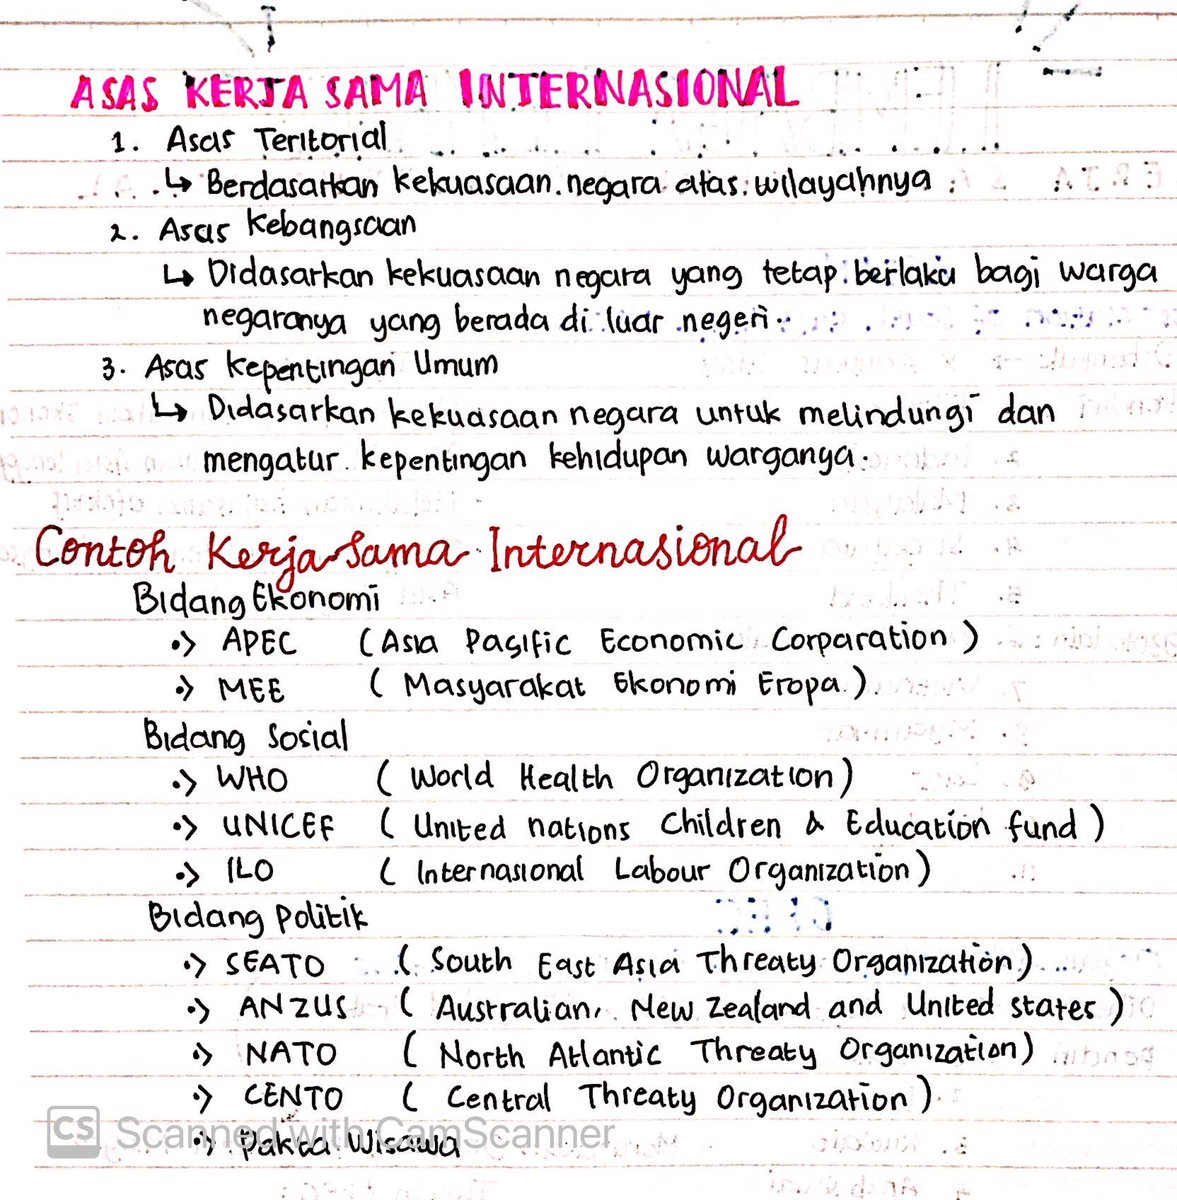 ASAS KERJA SAMA INTERNASIONAL
1. Asas Teritorial
↳ Berdasarkan kekuasaan negara atas wilayahnya
2. Asas Kebangsaan
↳ Didasarkan kekuasaan negara yang tetap berlaku bagi warga
negaranya yang berada di luar negeri.
3. Asas Kepentingan Umum
↳ Didasarkan kekuasaan negara untuk melindungi dan
mengatur kepentingan kehidupan warganya.
Contoh Kerja Sama Internasional
Bidang Ekonomi
•> APEC (Asia Pasific Economic Corparation)
•> MEE (Masyarakat Ekonomi Eropa)
Bidang Sosial
•> WHO (World Health Organization)
•> UNICEF (United nations Children & Education fund)
•> ILO (Internasional Labour Organization)
Bidang Politik
•> SEATO (South East Asia Threaty Organization)
•> ANZUS (Australian, New Zealand and United states)
•> NATO (North Atlantic Threaty Organization)
•> CENTO (Central Threaty Organization)
•> Pakta Wisawa
CS Scanned with CamScanner